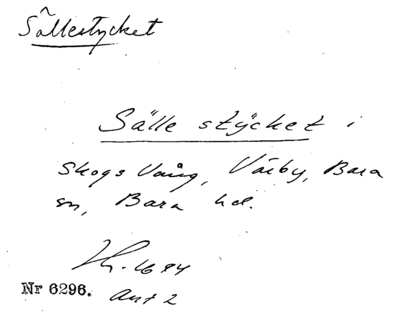 Sällestycket
Sälle stÿcket i
Skogs Vång, Värby, Bara
sn, Bara hd.
Lh. 1694
Nr 6296. Ant 2